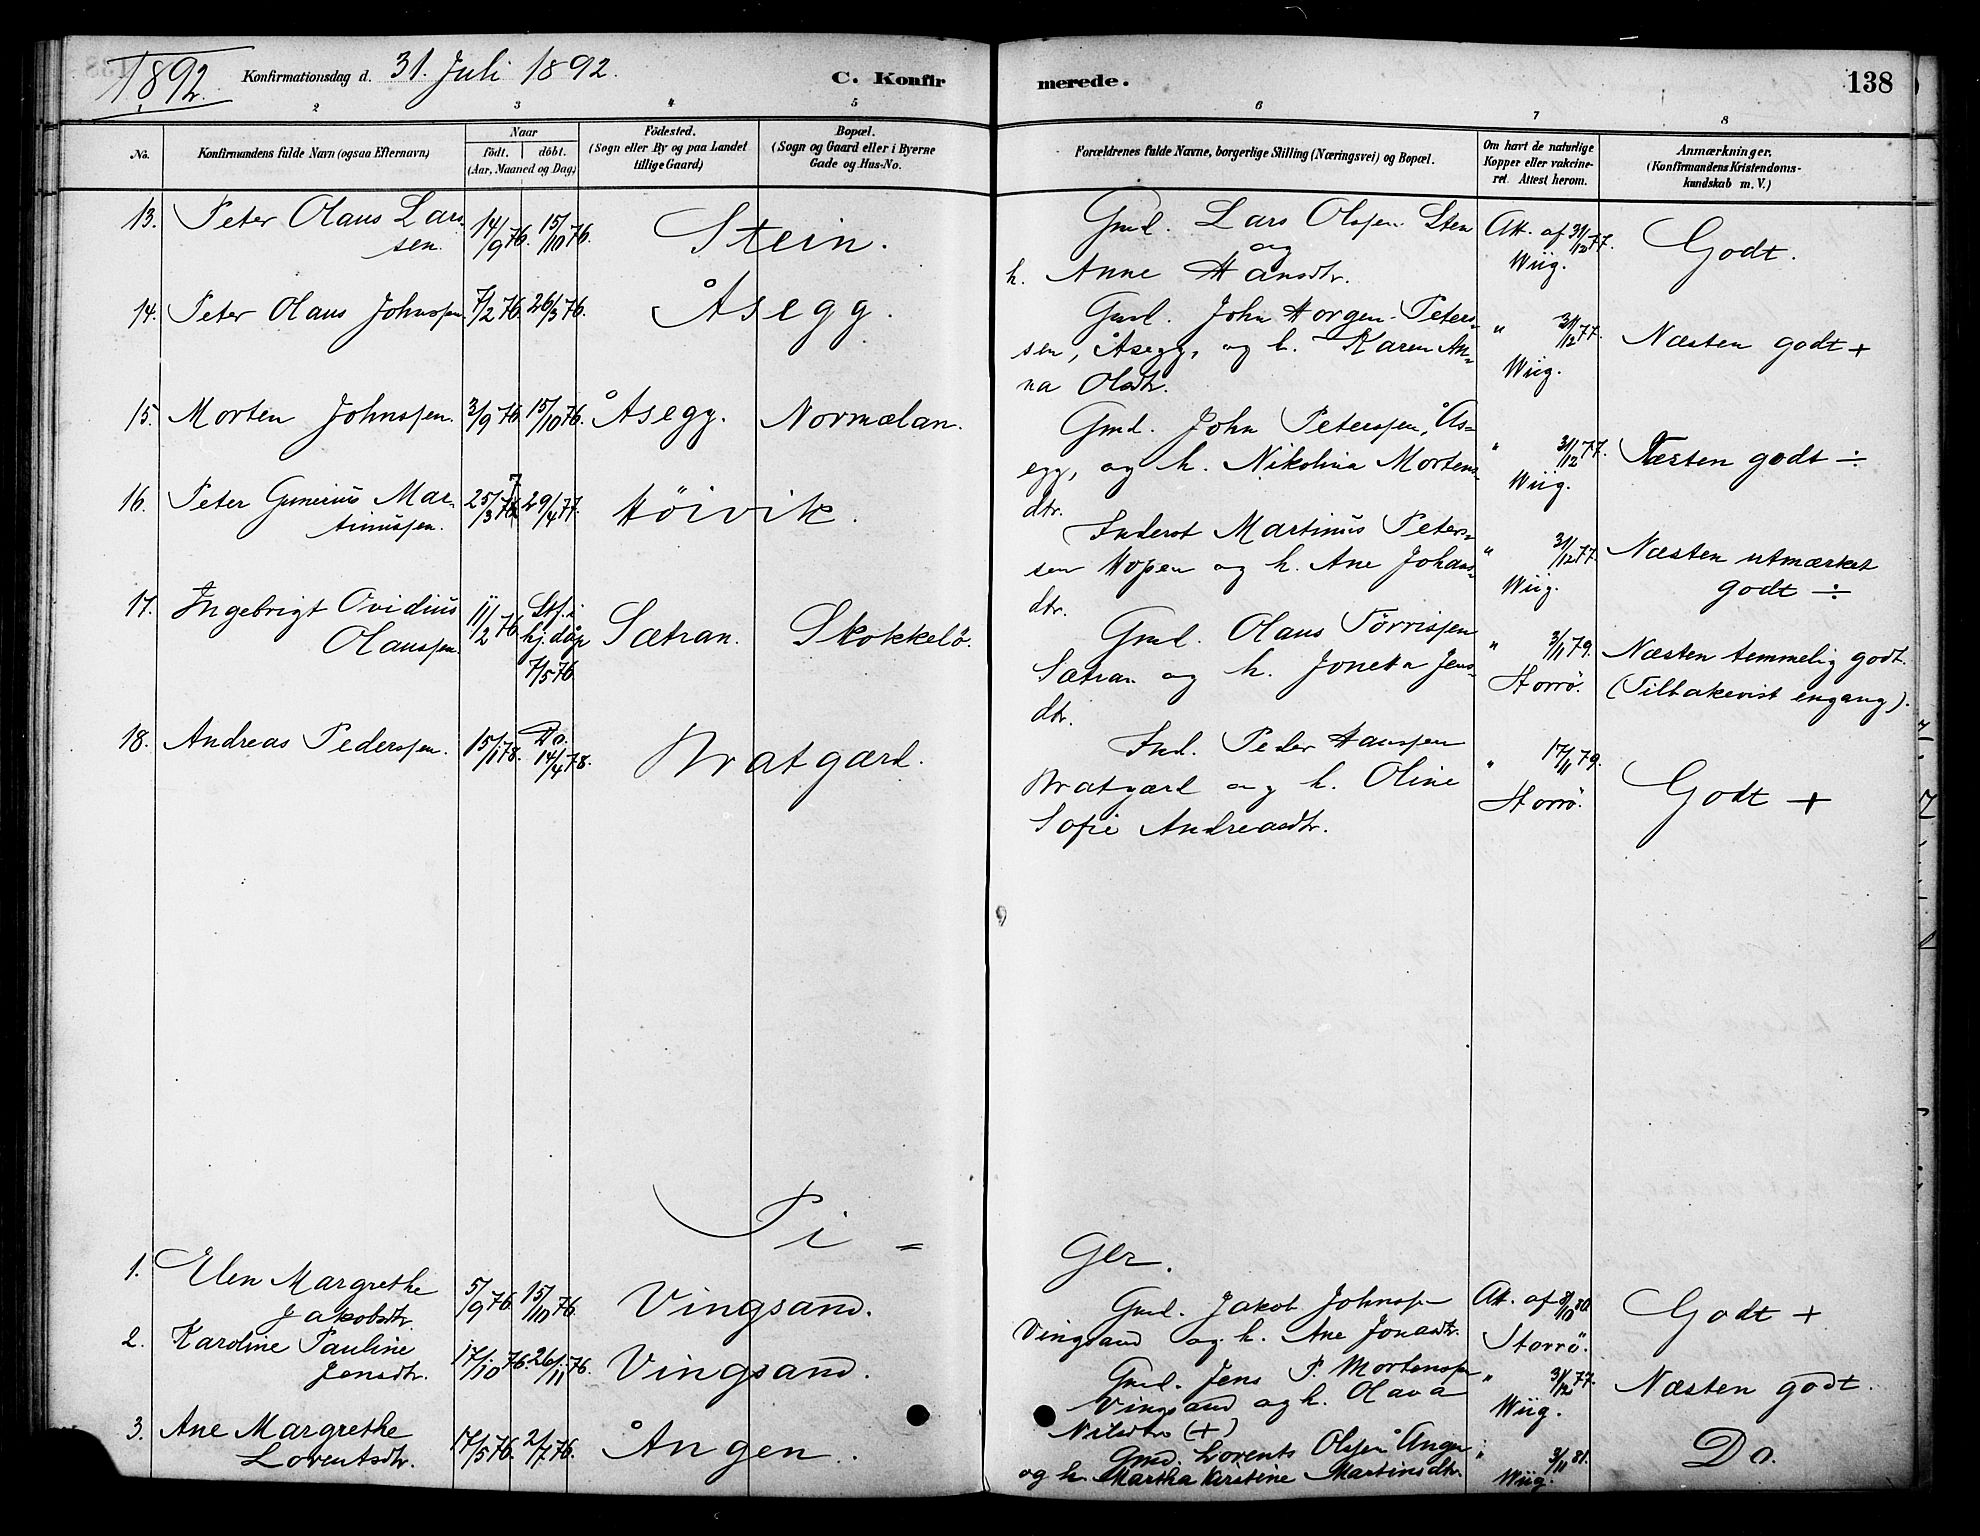 1892.
Konfirmationsdag d. 31. Juli 1892.
C. Konfir
merede.
138
1 2 3 4 5 6 7 8
No.
Konfirmandens fulde Navn (ogsaa Efternavn)
Naar
födt. döbt.
(Aar, Maaned og Dag)
Födested.
(Sogn eller By og paa Landet
tillige Gaard)
Bopæl.
(Sogn og Gaard eller i Byerne
Gade og Hus-No.
Forældrenes fulde Navne, borgerlige Stilling (Næringsvei) og Bopæl.
Om havt de naturlige
Kopper eller vakcine-
ret. Attest herom.
Anmærkninger.
(Konfirmandens Kristendoms-
kundskab m. V.)
13. Peter Olaus Lars-
sen. 14/9 76. 15/10 76. Stein.
Gmd. Lars Olssen Sten
og
h. Anne Hånsdtr.
Att. af 31/12 77.
Wiig.
Godt.
14. Peter Olaus Johnssen. 7/2 76. 26/3 76. Åsegg.
Gmd. John Horgen Peters-
sen, Åsegg, og h. Karen An-
na Olsdtr.
" 31/12 77.
Wiig.
Næsten godt +
15. Morten Johnssen. 3/9 76. 15/10 76. Åsegg. Normælan.
Gmd. John Peterssen, Ås-
egg, og h. Nikolina Mortens-
dtr.
" 31/12 77.
Wiig.
Næsten godt ÷
16. Peter Gunerius Mar-
tinussen. 25/3 77 29/4 77. Höivik.
Inderst Martinus Peters-
sen Hopen og h. Ane Johans-
dtr.
" 31/12 77.
Wiig.
Næsten utmærket
godt ÷
17. Ingebrigt Ovidius
Olaussen 11/2 76 Stf. i
hj. dåp
7/5 76 Sætran. Skokkelö.
Gmd. Olaus Törrissen
Sætran og h. Jonetta Jens-
dtr.
" 3/11 79.
Storrö.
Næsten temmelig godt.
(Tilbakevist engang).
18. Andreas Pederssen. 15/1 78. Do.
14/4 78. Bratgærd.
Ind. Peder Hanssen
Bratgærd og h. Oline
Sofie Andreasdtr.
" 17/11 79.
Storrö.
Godt +
Pi -
Ger.
1. Elen Margrethe
Jakobsdtr. 5/9 76. 15/10 76. Vingsand.
Gmd. Jakob Johnssen
Vingsand og h. Ane Jonasdtr.
Att. af 8/10 80.
Storrö.
Godt +
2. Karoline Pauline
Jensdtr. 17/10 76. 26/11 76. Vingsand.
Gmd. Jens P. Mortenssen
Vingsand og h. Olava
Nilsdtr (+)
" 31/12 77.
Wiig.
Næsten godt.
3. Ane Margrethe
Lorentsdtr. 17/5 76. 2/7 76. Ången.
Gmd. Lorents Olssen Ången
og h. Martha Kirstine Martinsdtr.
" 3/11 81.
Wiig.
Do.